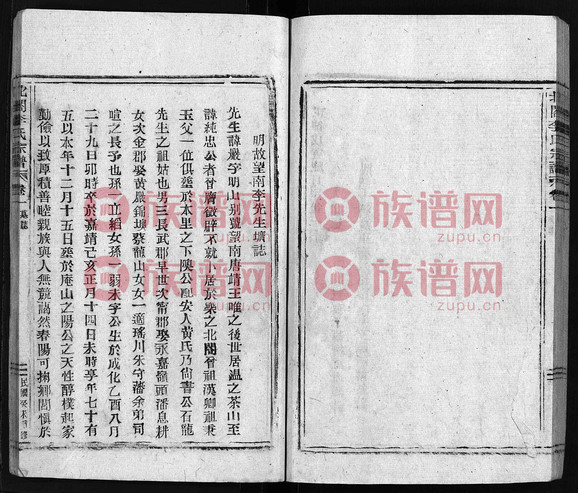 明故望南李先生壙誌
先生諱嚴字明山別號望南唐靖王唯之後世居溫之茶山至
諱純忠公者曾膺徵辟不就卜居於樂之北閤曾祖漢卿祖秉
玉父一位俱塟於本里之下陝公配安人黃氏乃尙書公石龍
先生之祖姑也男三長武郡早世次甯郡娶永嘉嶺頭潘恩耕
女次金郡娶黃巖錦坦蔡龍山女女一適瑤川朱守藩余弟司
喧之長子也孫一立綬女孫一弱未字公生於成化乙酉八月
二十九日卯時卒於嘉靖己亥正月十四日未時享年七十有
五以本年十二月十五日塟於庵山之陽公之天性醇樸起家
勤儉以致厚積善睦親族與人無競藹然春陽可掬鄉閭慎於
北閤李氏宗譜 卷一 壙誌
民國癸未重修
北閤李氏宗譜 卷一
族谱网
zupu.cn
族谱网
zupu.cn
族谱网
zupu.cn
族谱网
zupu.cn